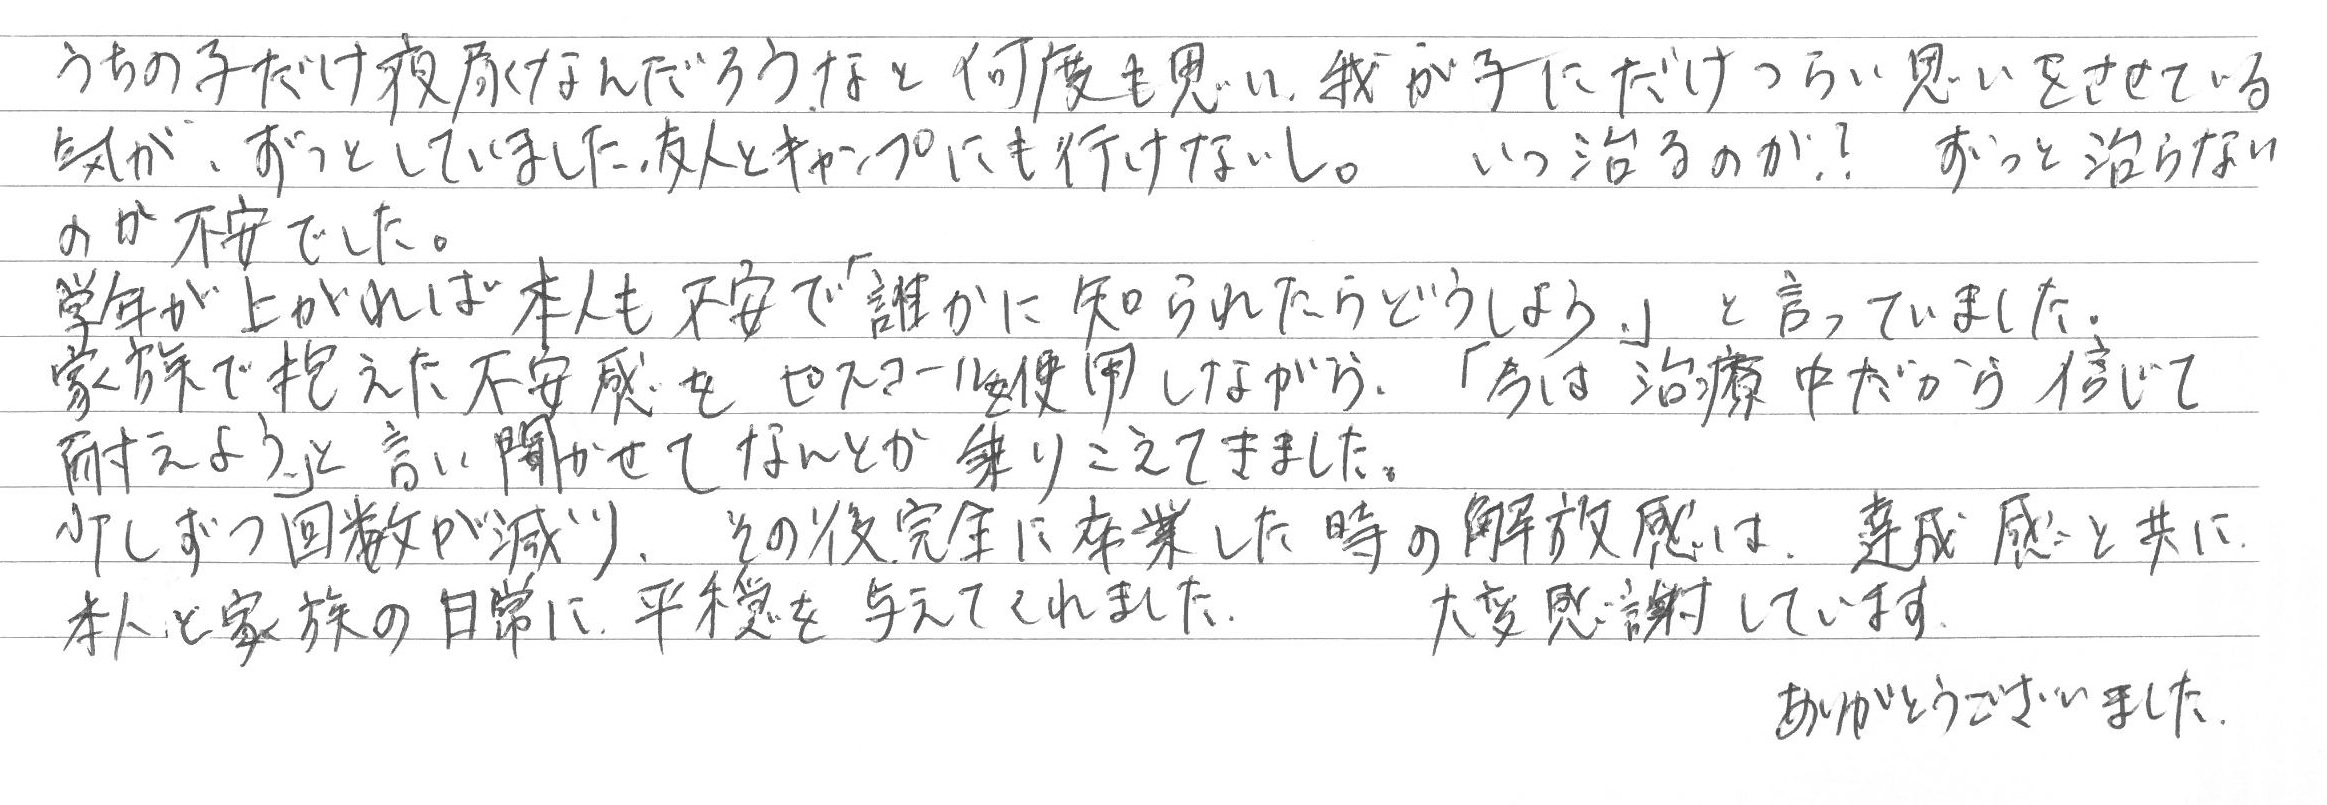 うちの子だけ夜尿なんだろうなと何度も思い、我が子にだけつらい思いをさせている
気が、ずっとしていました。友人とキャンプにも行けないし。 いつ治るのか?! ずっと治らない
のか不安でした。
学年が上がれば本人も不安で「誰かに知られたらどうしよう。」と言っていました。
家族で抱えた不安感をピスコールを使用しながら、「今は治療中だから信じて
耐えよう。」と言い聞かせてなんとか乗りこえてきました。
少しずつ回数が減り、その後完全に卒業した時の解放感は、達成感と共に、
本人と家族の日常に、平穏を与えてくれました。 大変感謝しています。
ありがとうございました。